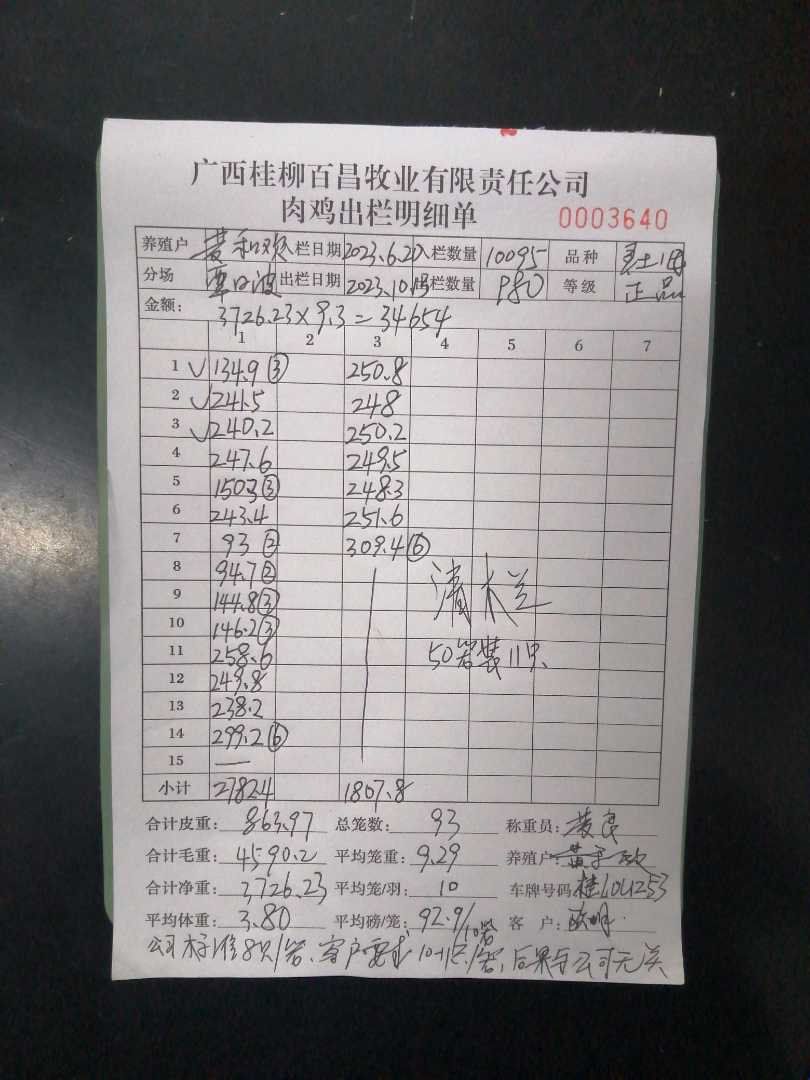 广西桂柳百昌牧业有限责任公司
肉鸡出栏明细单 0003640
养殖户 黄和欢 入栏日期 2023.6.20 入栏数量 10095 品种
分场 出栏日期 2023.10. 出栏数量 980 等级 正品
金额: 3726.23×9.3=34654
1 2 3 4 5 6 7
1 ✓134.9③ 250.8
2 ✓241.5 248
3 ✓240.2 250.2
4 247.6 249.5
5 150.3③ 248.3
6 243.4 251.6
7 93② 309.4⑥
8 94.7②
9 144.8③
10 146.2③
11 258.6
12 249.8
13 238.2
14 299.2⑥
15 —
清栏
50笼装11只
小计 2782.4 1807.8
合计皮重: 863.97 总笼数: 93 称重员: 黄良
合计毛重: 4590.2 平均笼重: 9.29 养殖户:
合计净重: 3726.23 平均笼/羽: 10 车牌号码: 桂L0U253
平均体重: 3.80 平均磅/笼: 92.9/10笼 客户:
公司标准8只/笼、客户要求10-11只/笼、后果与公司无关